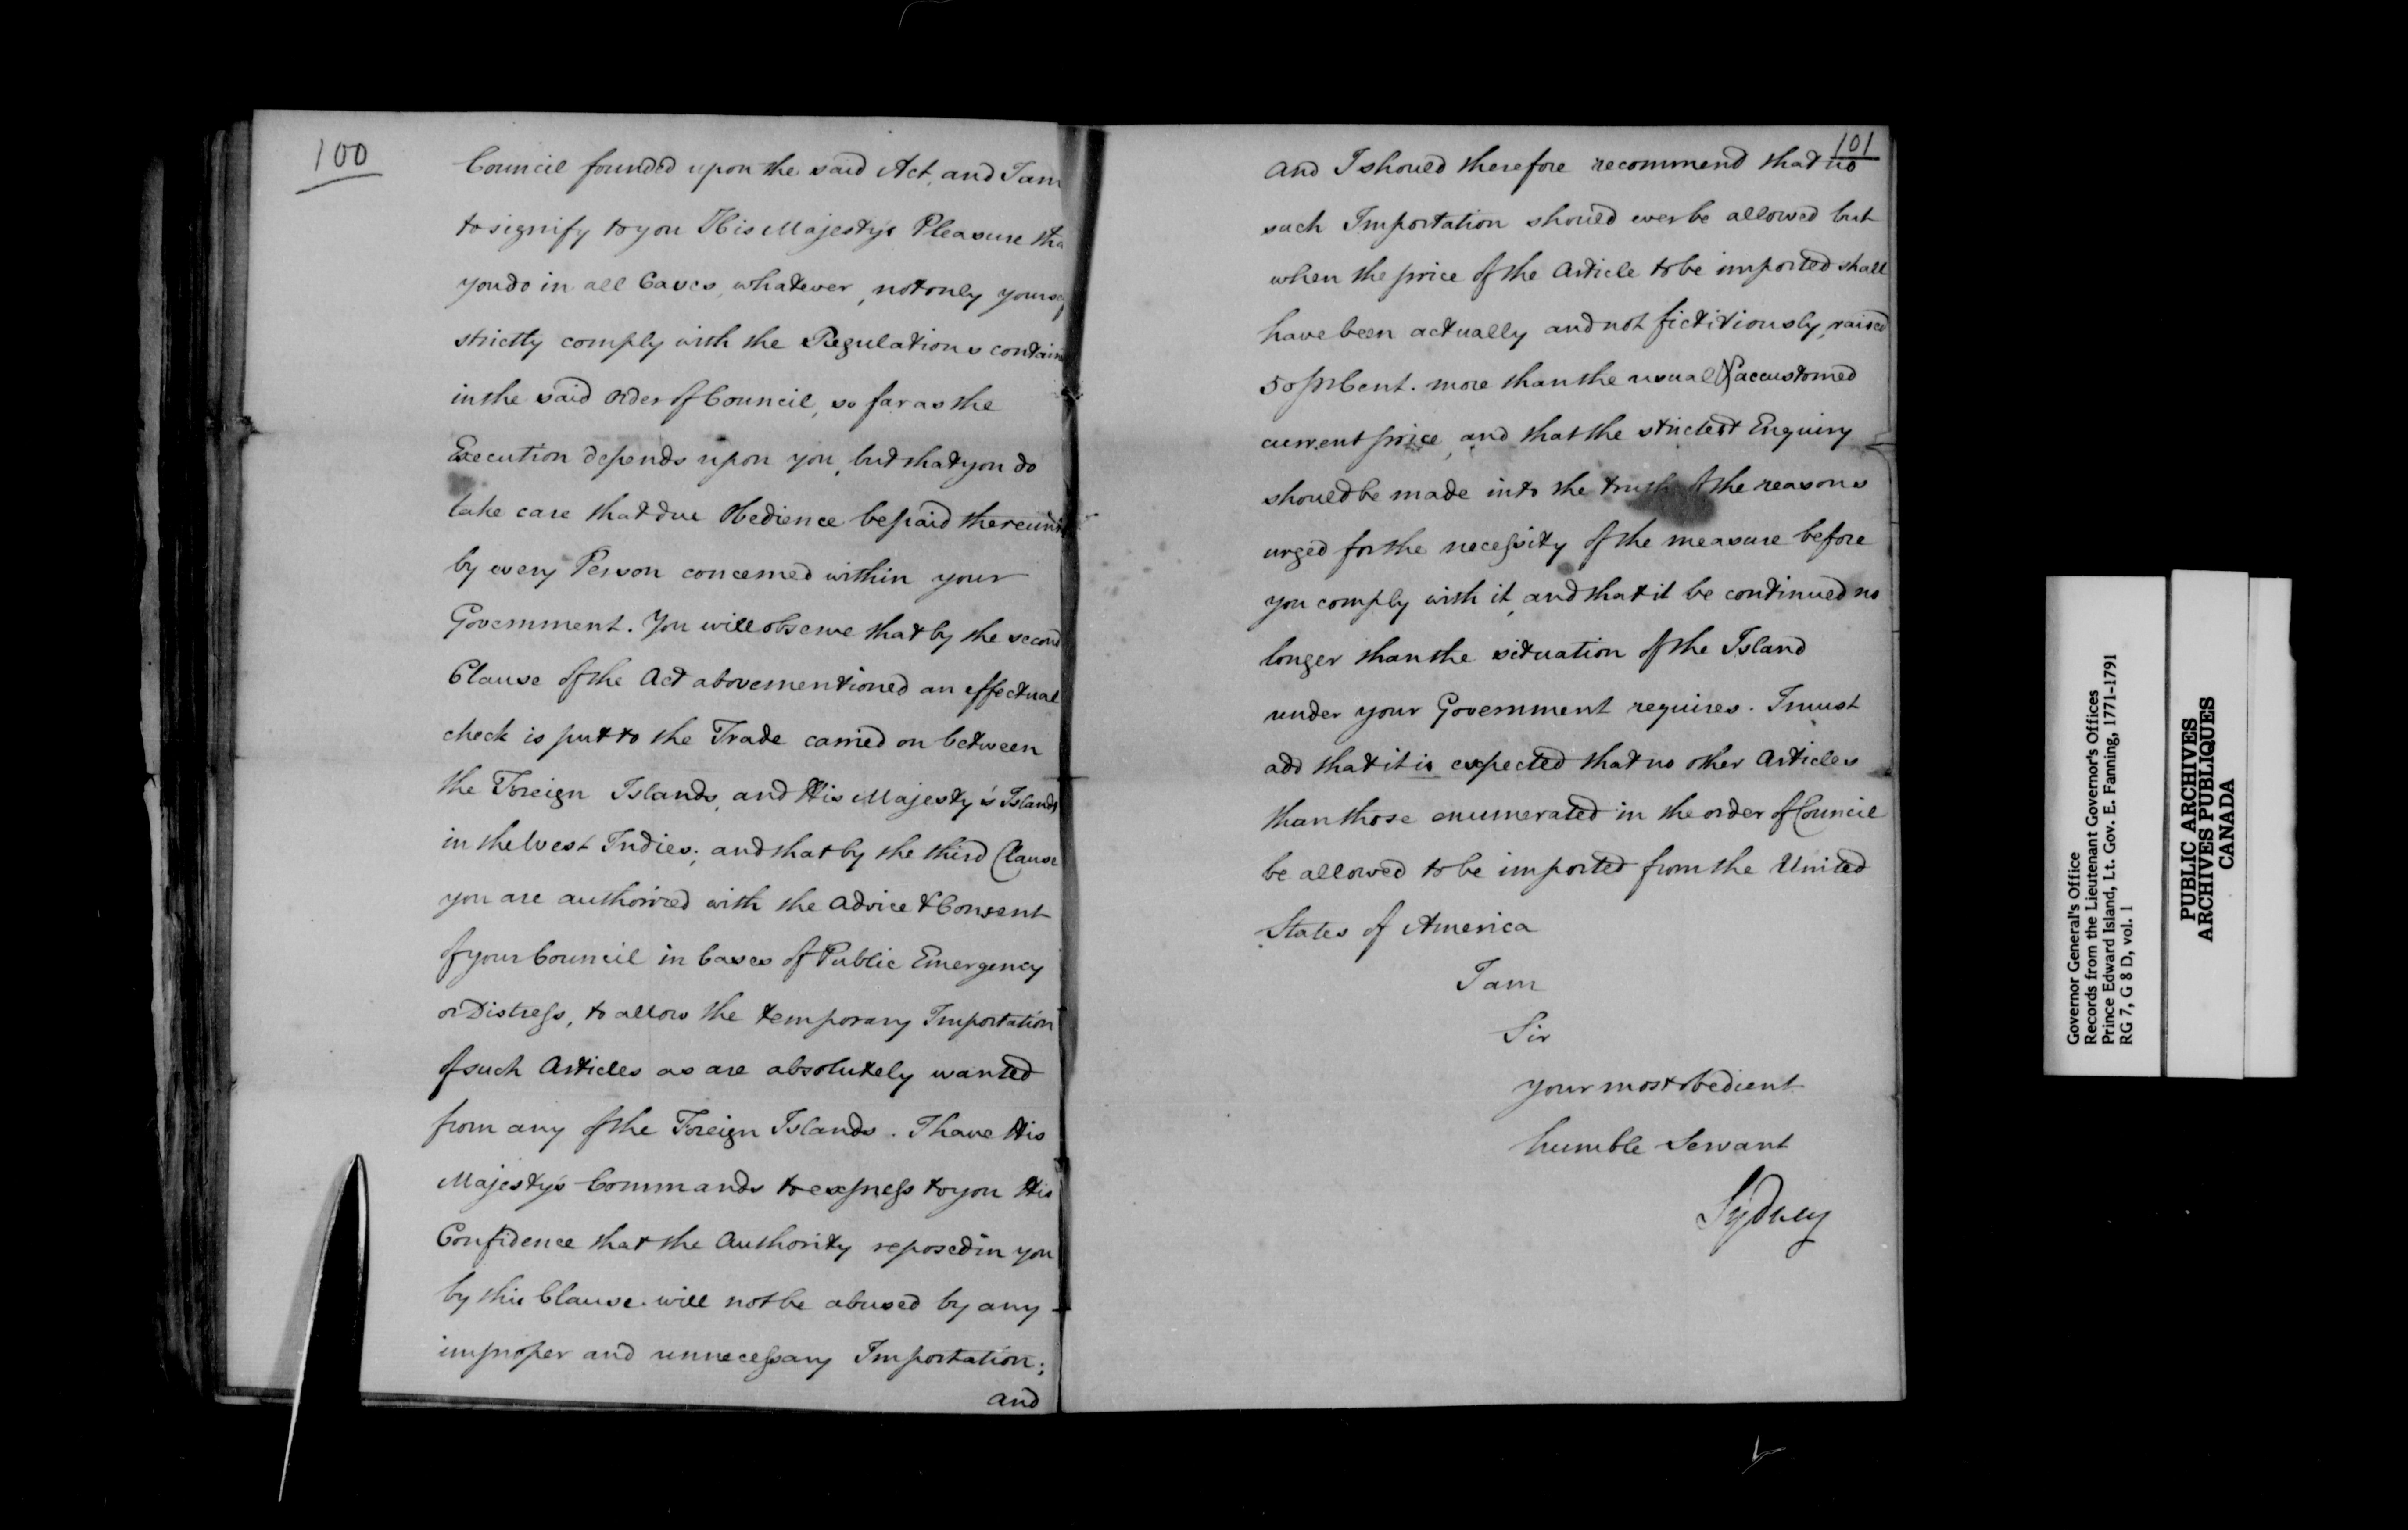 100
Council founded upon the said Act, and I am
to signify to you His Majesty's Pleasure tha
you do in all Cases, whatever, not only yourse
strictly comply with the Regulations contain
in the said Order of Council, so far as the
Execution depends upon you, but that you do
take care that due Obedience be paid thereunt
by every Person concerned within your
Government. You will observe that by the second
Clause of the Act abovementioned an effectual
check is put to the Trade carried on between
the Foreign Islands, and His Majesty's Islands
in the West Indies; and that by the third Clause
you are authorized with the Advice & Consent
of your Council in Cases of Public Emergency
or Distress, to allow the temporary Importation
of such Articles as are absolutely wanted
from any of the Foreign Islands. I have His
Majesty's Commands to express to you His
Confidence that the Authority reposed in you
by this Clause will not be abused by any
improper and unnecessary Importation;
and
101
and I should therefore recommend that no
such Importation should ever be allowed but
when the price of the Article to be imported shall
have been actually and not fictitiously, raised
50 pr Cent. more than the usual & accustomed
current price, and that the strictest Enquiry
should be made into the truth of the reasons
urged for the necessity of the measure before
you comply with it, and that it be continued no
longer than the situation of the Island
under your Government requires. I must
add that it is expected that no other Articles
than those enumerated in the order of Council
be allowed to be imported from the United
States of America
I am
Sir
your most obedient
humble Servant
Sydney
Governor General's Office
Records from the Lieutenant Governor's Offices
Prince Edward Island, Lt. Gov. E. Fanning, 1771-1791
RG 7, G 8 D, vol. 1
PUBLIC ARCHIVES
ARCHIVES PUBLIQUES
CANADA